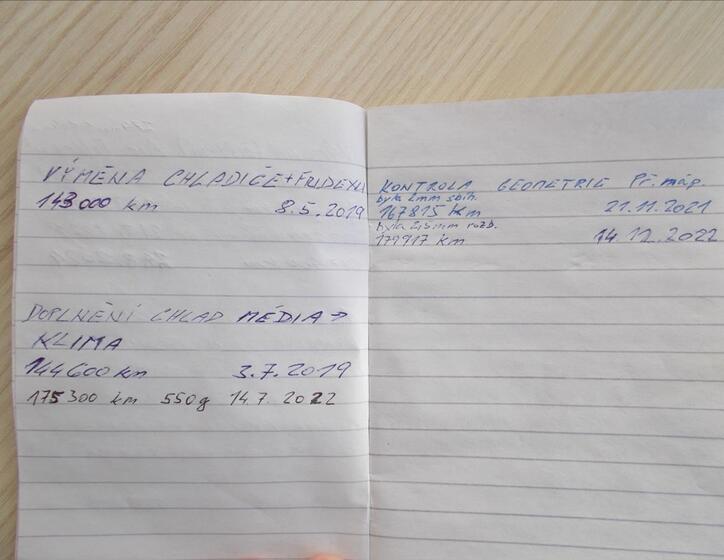 VÝMĚNA CHLADIČE+FRIDEXU
143000 km 8.5.2019
DOPLNĚNÍ CHLAD MÉDIA →
KLIMA
144600 km 3.7.2019
175300 km 550g 14.7.2022
KONTROLA GEOMETRIE Př. náp.
byla 2mm sbíh.
167815 km 21.11.2021
byla 2,5mm rozb.
179917 km 14.12.2022